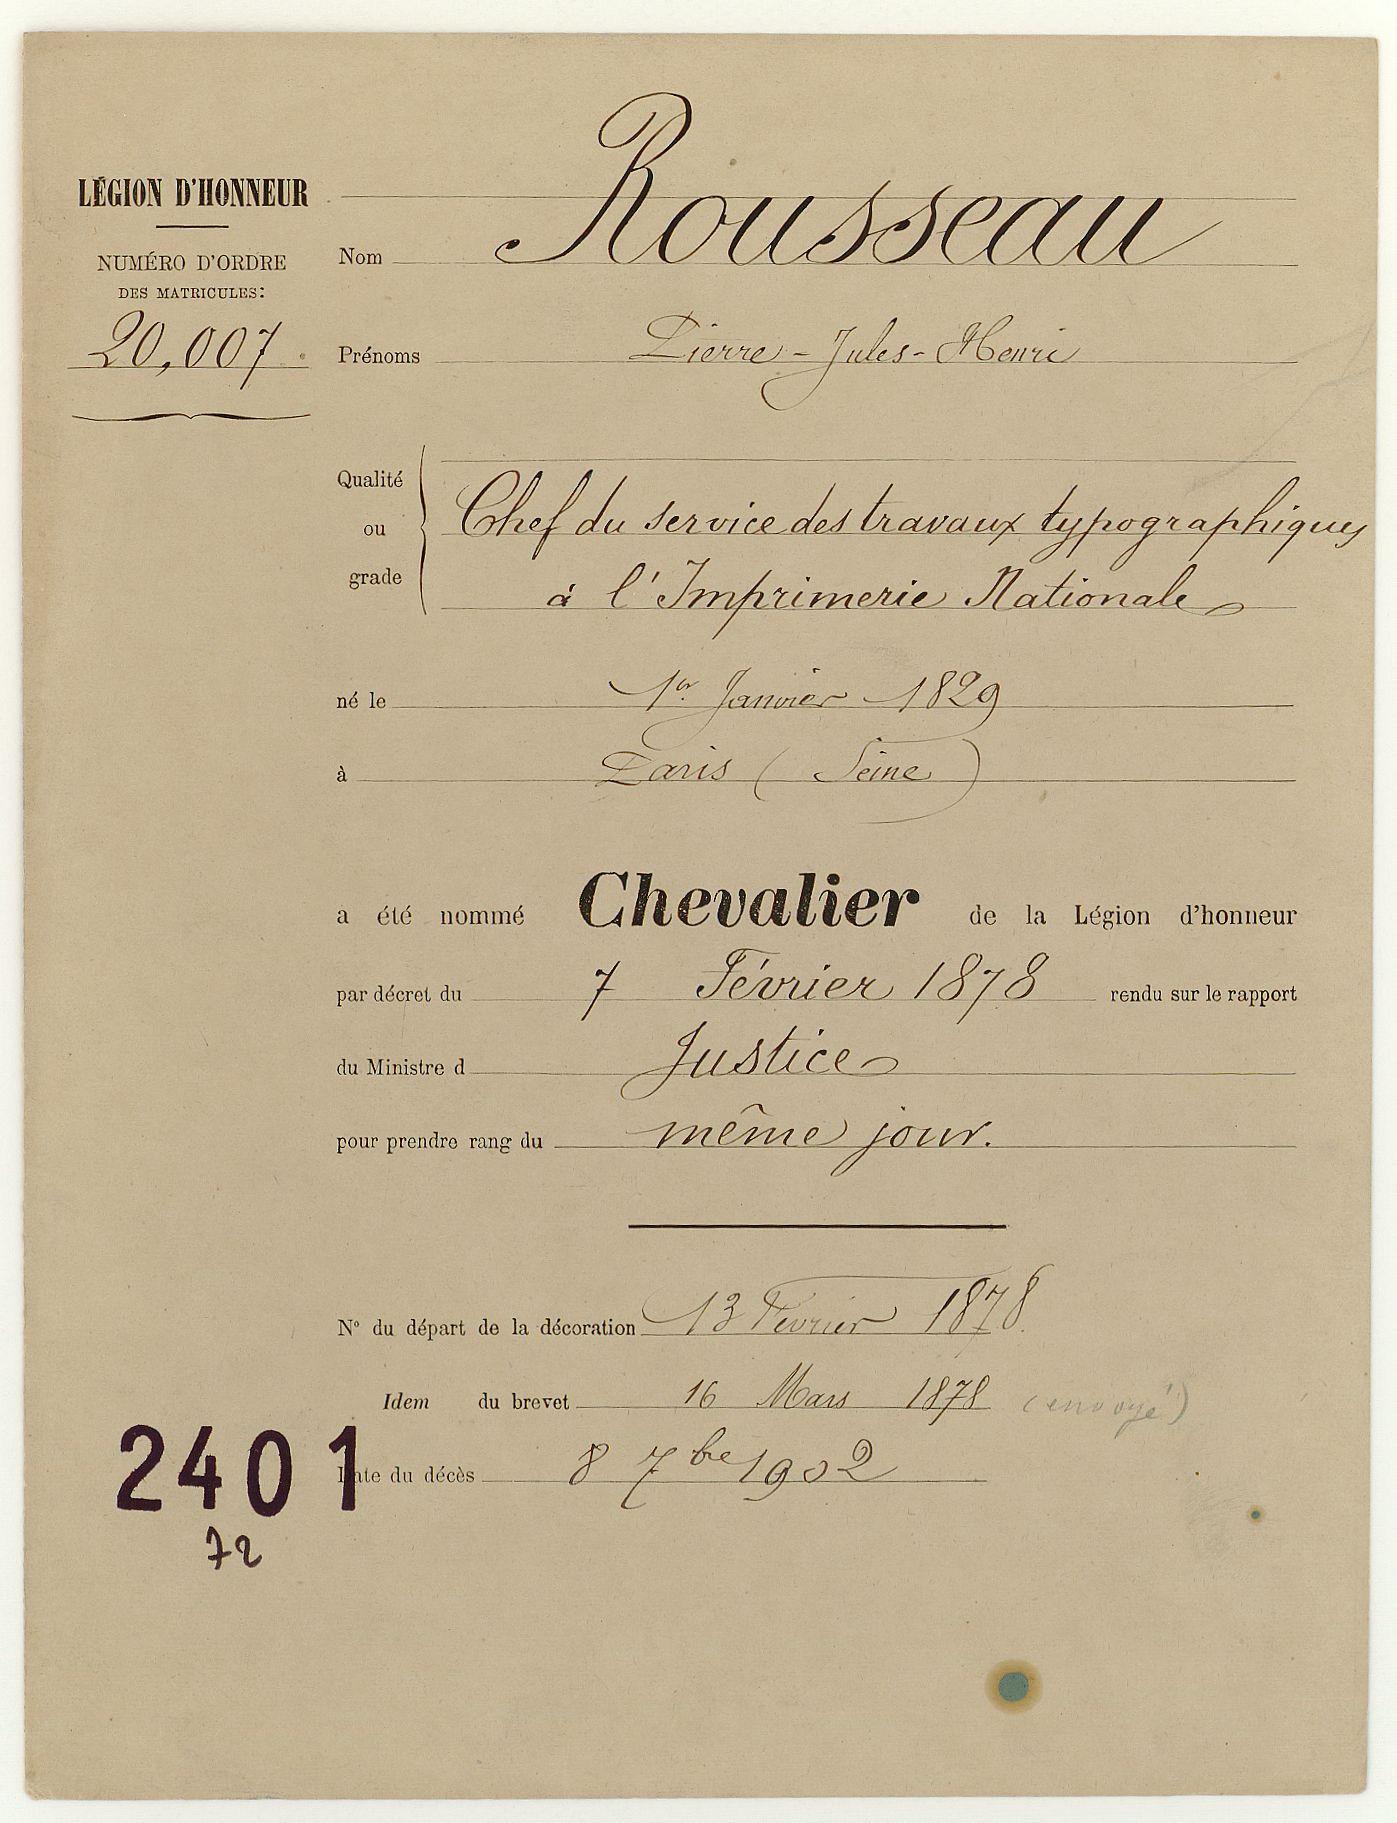 LÉGION D'HONNEUR
NUMÉRO D'ORDRE
DES MATRICULES:
20,007
Nom Rousseau
Prénoms Pierre-Jules-Henri
Qualité ou grade
Chef du service des travaux typographiques
à l'Imprimerie Nationale
né le 1er Janvier 1829
à Paris (Seine)
a été nommé Chevalier de la Légion d'honneur
par décret du 7 Février 1878 rendu sur le rapport
du Ministre d Justice
pour prendre rang du même jour.
N° du départ de la décoration 13 Février 1878
Idem du brevet 16 Mars 1878 (envoyé)
Date du décès 8 7bre 1902
2401
72